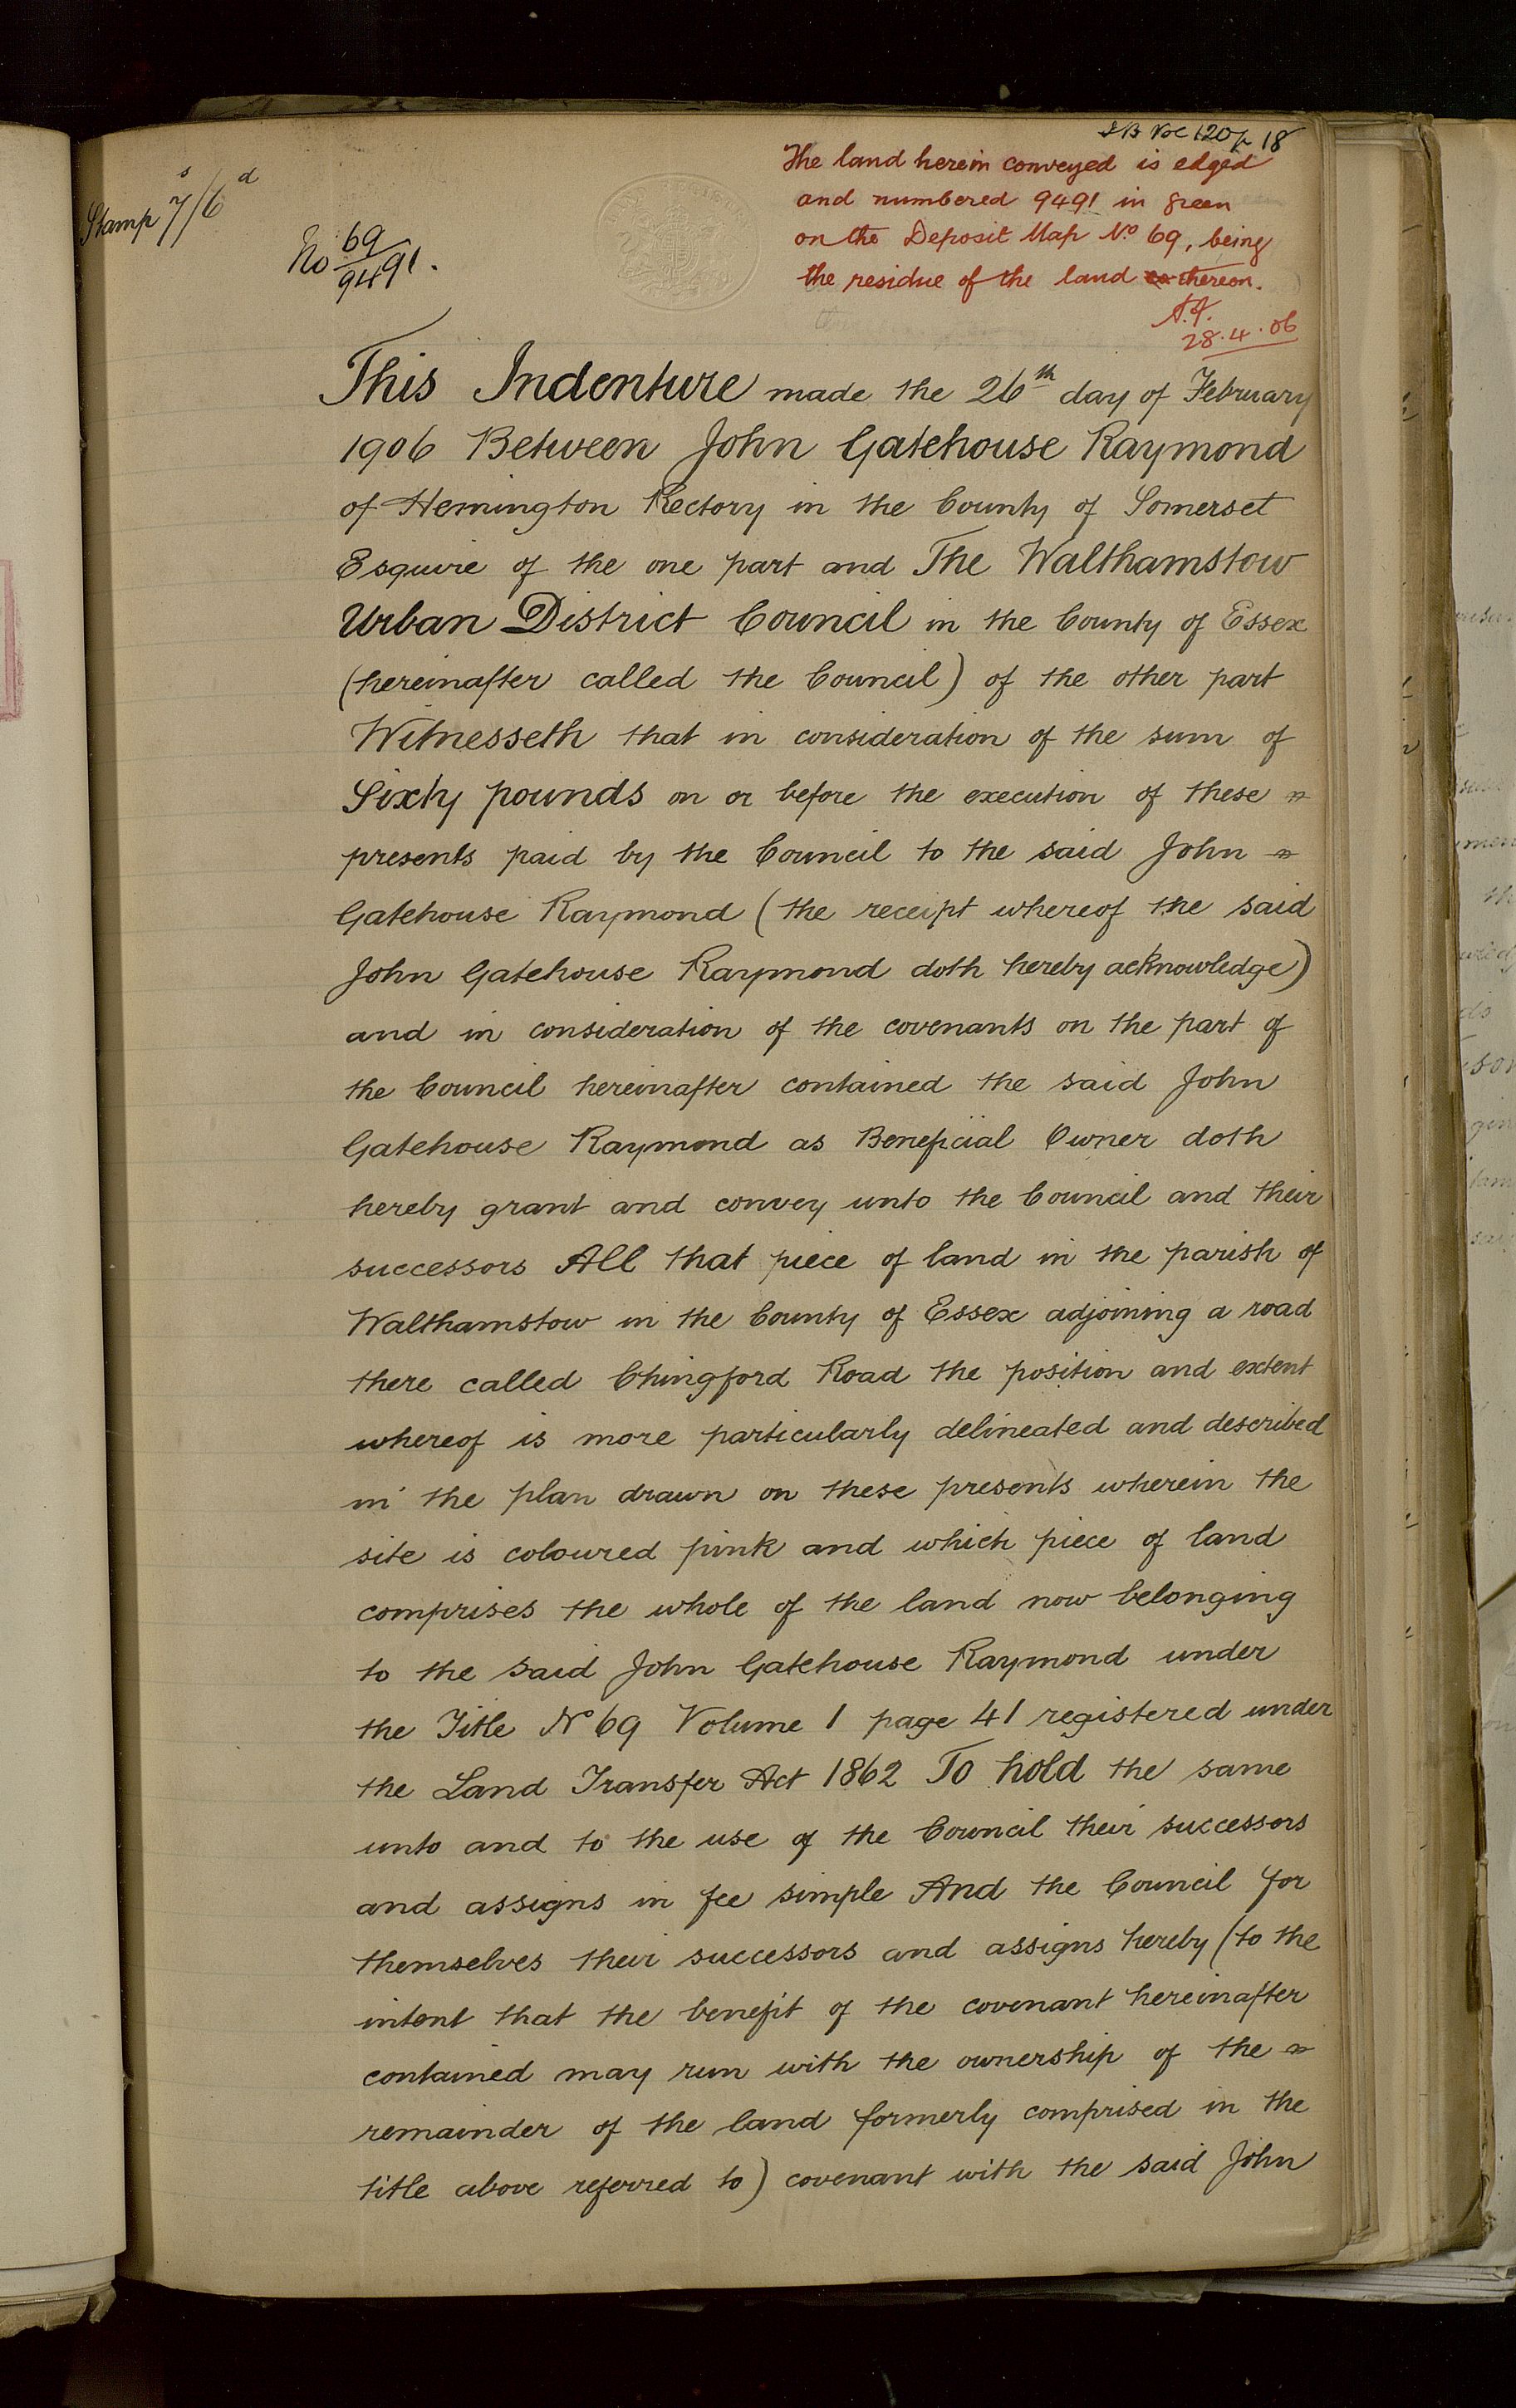 Stamp 7s/6d
No 69/9491.
120 p 18
The land herein conveyed is edged
and numbered 9491 in green
on the Deposit Map No. 69, being
the residue of the land thereon.
28.4.06
This Indenture made the 26th day of February
1906 Between John Gatehouse Raymond
of Hemington Rectory in the County of Somerset
Esquire of the one part and The Walthamstow
Urban District Council in the County of Essex
(hereinafter called the Council) of the other part
Witnesseth that in consideration of the sum of
Sixty pounds on or before the execution of these
presents paid by the Council to the said John
Gatehouse Raymond (the receipt whereof the said
John Gatehouse Raymond doth hereby acknowledge)
and in consideration of the covenants on the part of
the Council hereinafter contained the said John
Gatehouse Raymond as Beneficial Owner doth
hereby grant and convey unto the Council and their
successors All that piece of land in the parish of
Walthamstow in the County of Essex adjoining a road
there called Chingford Road the position and extent
whereof is more particularly delineated and described
in the plan drawn on these presents wherein the
site is coloured pink and which piece of land
comprises the whole of the land now belonging
to the said John Gatehouse Raymond under
the Title No 69 Volume 1 page 41 registered under
the Land Transfer Act 1862 To hold the same
unto and to the use of the Council their successors
and assigns in fee simple And the Council for
themselves their successors and assigns hereby (to the
intent that the benefit of the covenant hereinafter
contained may run with the ownership of the
remainder of the land formerly comprised in the
title above referred to) covenant with the said John